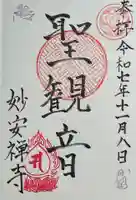 奉拝
令和七年十一月八日
聖観音
妙安禅寺